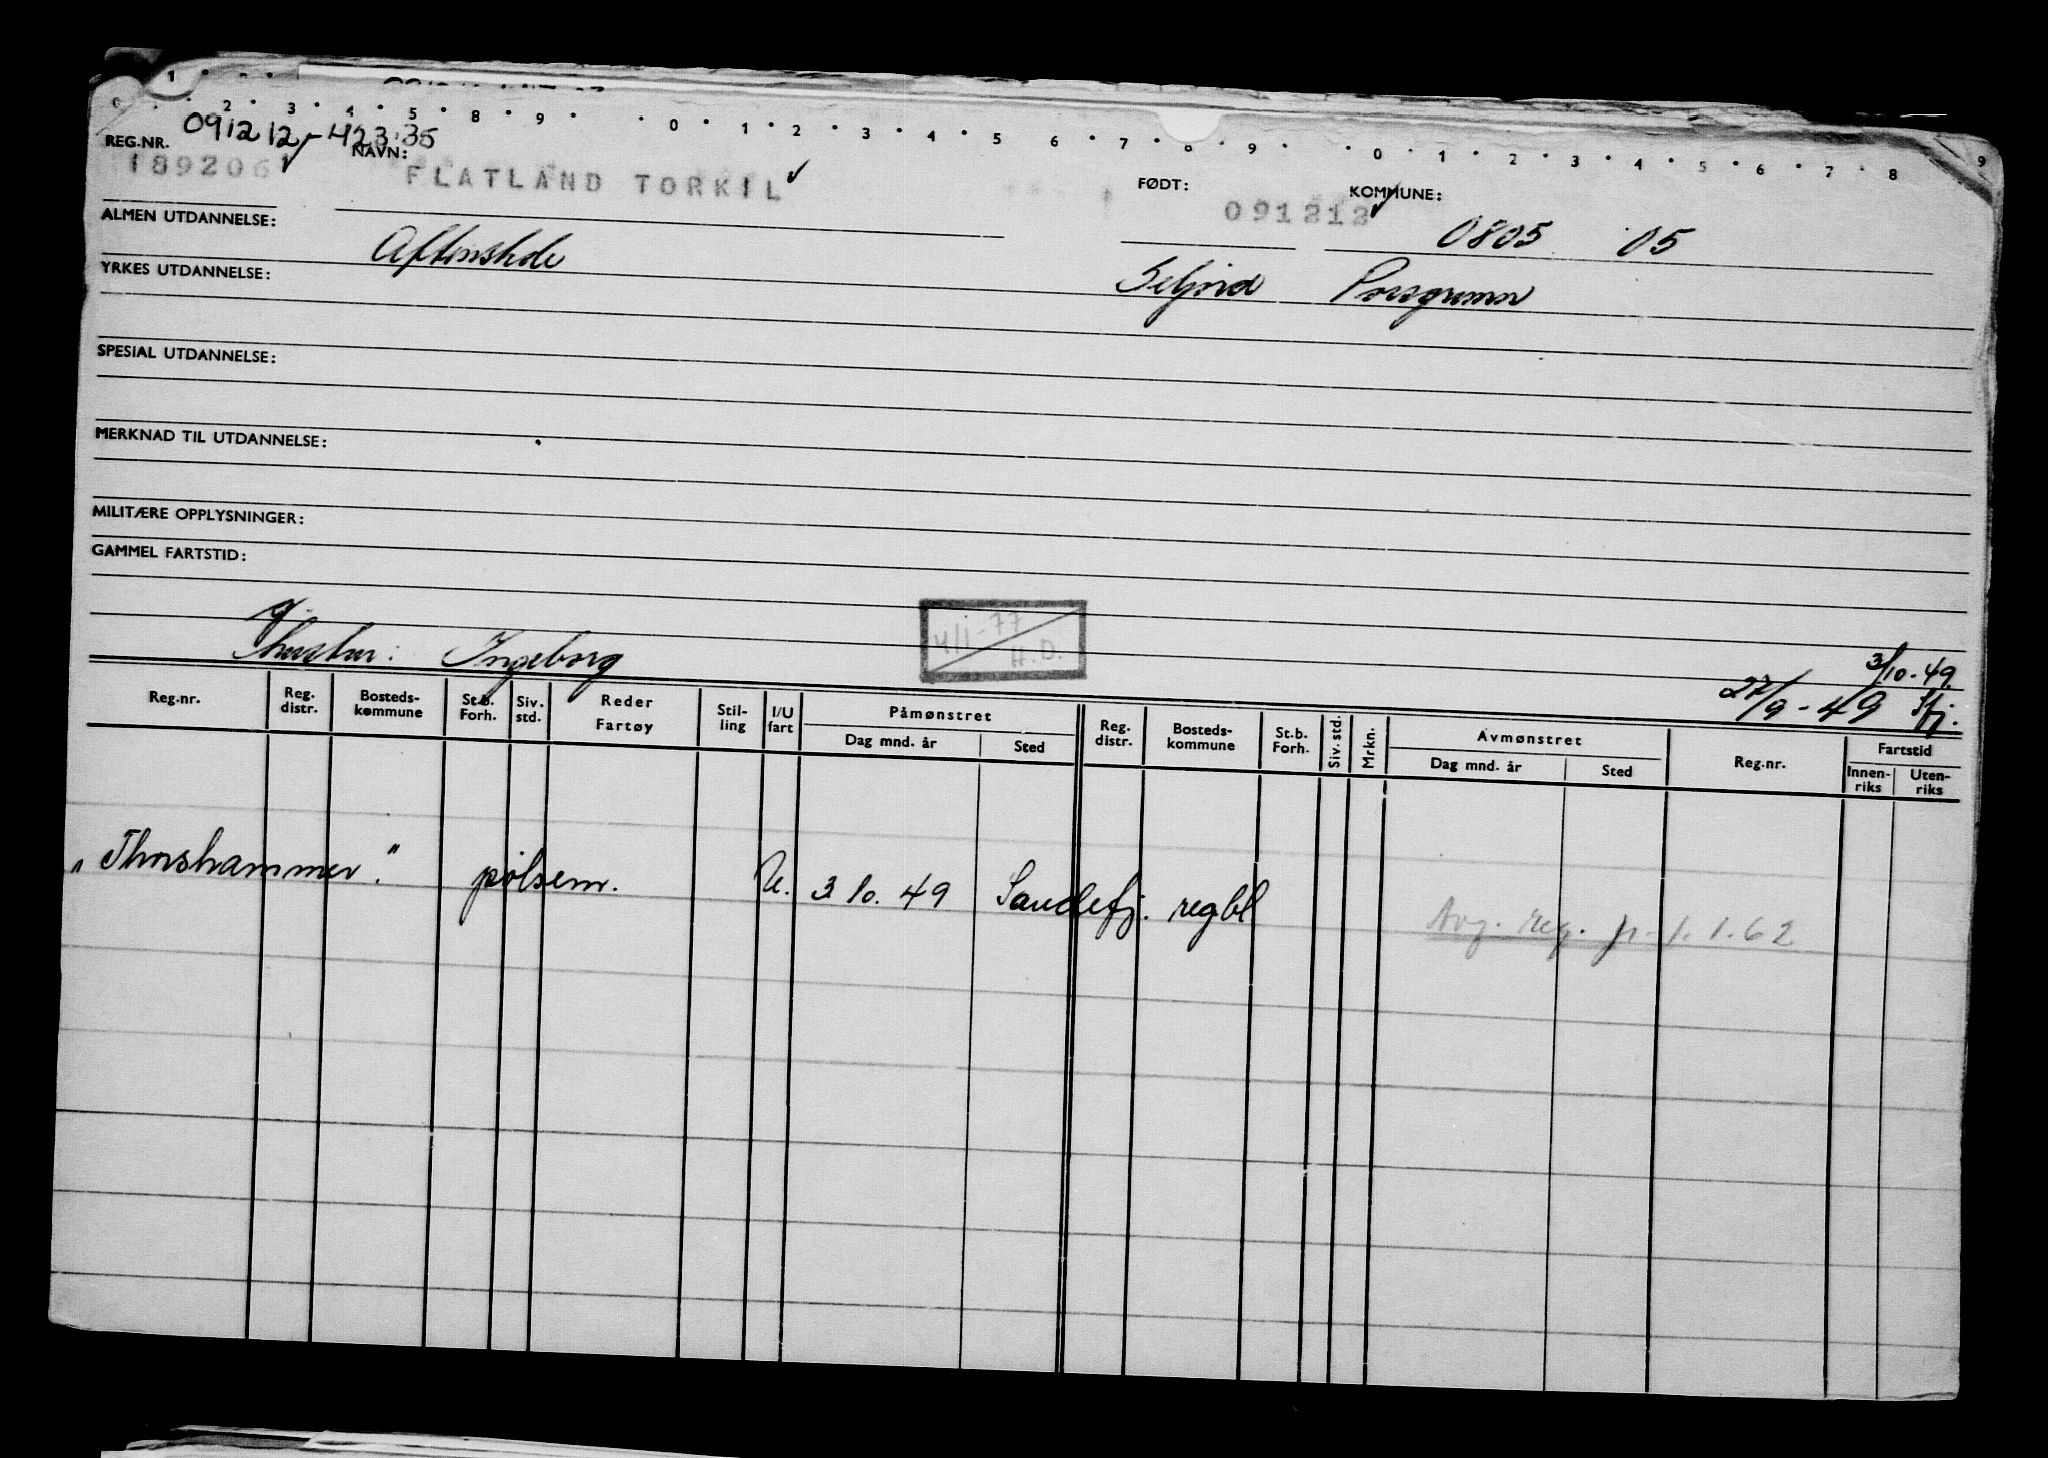 1
2 3 4 5 8 9 0 1 2 3 4 5 6 7 8 9 0 1 2 3 4 5 6 7 8 9
091212-42335
REG.NR. NAVN: FØDT: KOMMUNE:
189206 FLATLAND TORKIL 091212 0805 05
ALMEN UTDANNELSE:
YRKES UTDANNELSE: Seljord Porsgrunn
SPESIAL UTDANNELSE:
MERKNAD TIL UTDANNELSE:
MILITÆRE OPPLYSNINGER:
GAMMEL FARTSTID:
g.
hustru: Ingeborg 4/1-77 H.D. 3/10-49.
27/9-49 Sfj.
Reg.nr. Reg. distr. Bosteds-kommune St.b. Forh. Siv. std. Reder Fartøy Stil-ling I/U fart Påmønstret Dag mnd. år Sted Reg. distr. Bosteds-kommune St.b. Forh. Siv. std. Mrkn. Avmønstret Dag mnd. år Sted Reg.nr. Fartstid Innen-riks Uten-riks
"Thorshammer." pølsem. U. 3 10. 49 Sandefj. regbl Avg. reg. pr. 1.1.62